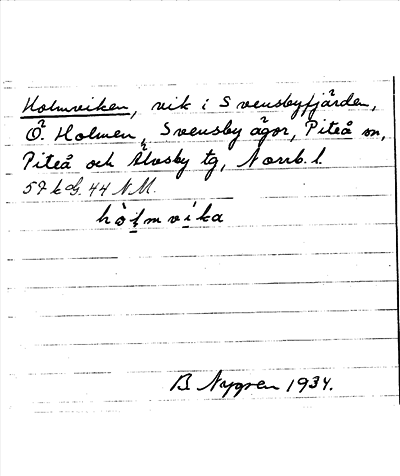 Holmviken, vik i Svensbyfjärden,
Ö. Holmen, Svensby ägor, Piteå sn,
Piteå och Älvsby tg, Norrb. l.
57 k G. 44 N M.
hòlmvíka
B. Nygren 1934.